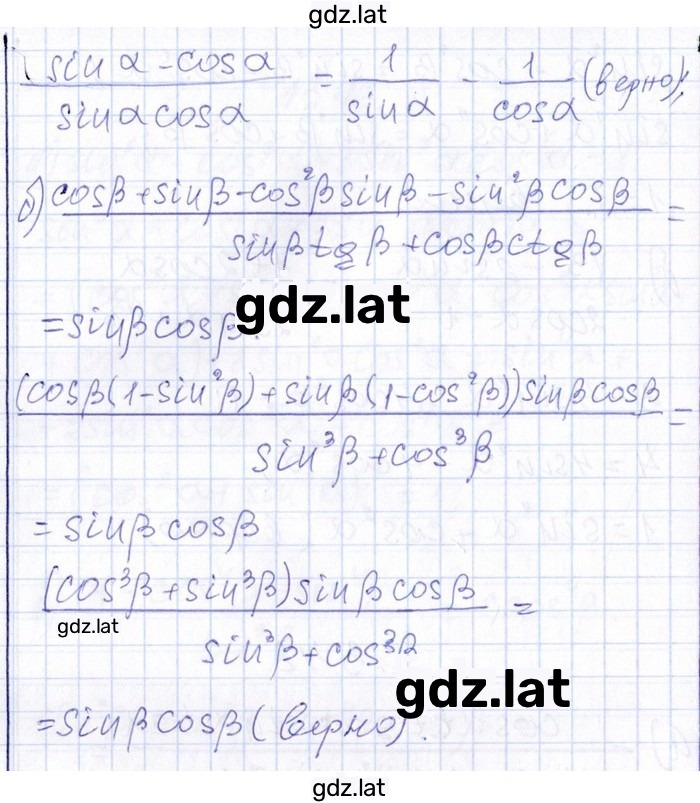 gdz.lat
(sin α - cos α)/(sin α cos α) = 1/sin α - 1/cos α (верно);
б) (cos β + sin β - cos²β sin β - sin²β cos β)/(sin β tg β + cos β ctg β) =
gdz.lat
= sin β cos β.
((cos β (1 - sin²β) + sin β (1 - cos²β)) sin β cos β)/(sin³β + cos³β) =
= sin β cos β
((cos³β + sin³β) sin β cos β)/(sin³β + cos³β) =
gdz.lat
gdz.lat
= sin β cos β (верно).
gdz.lat